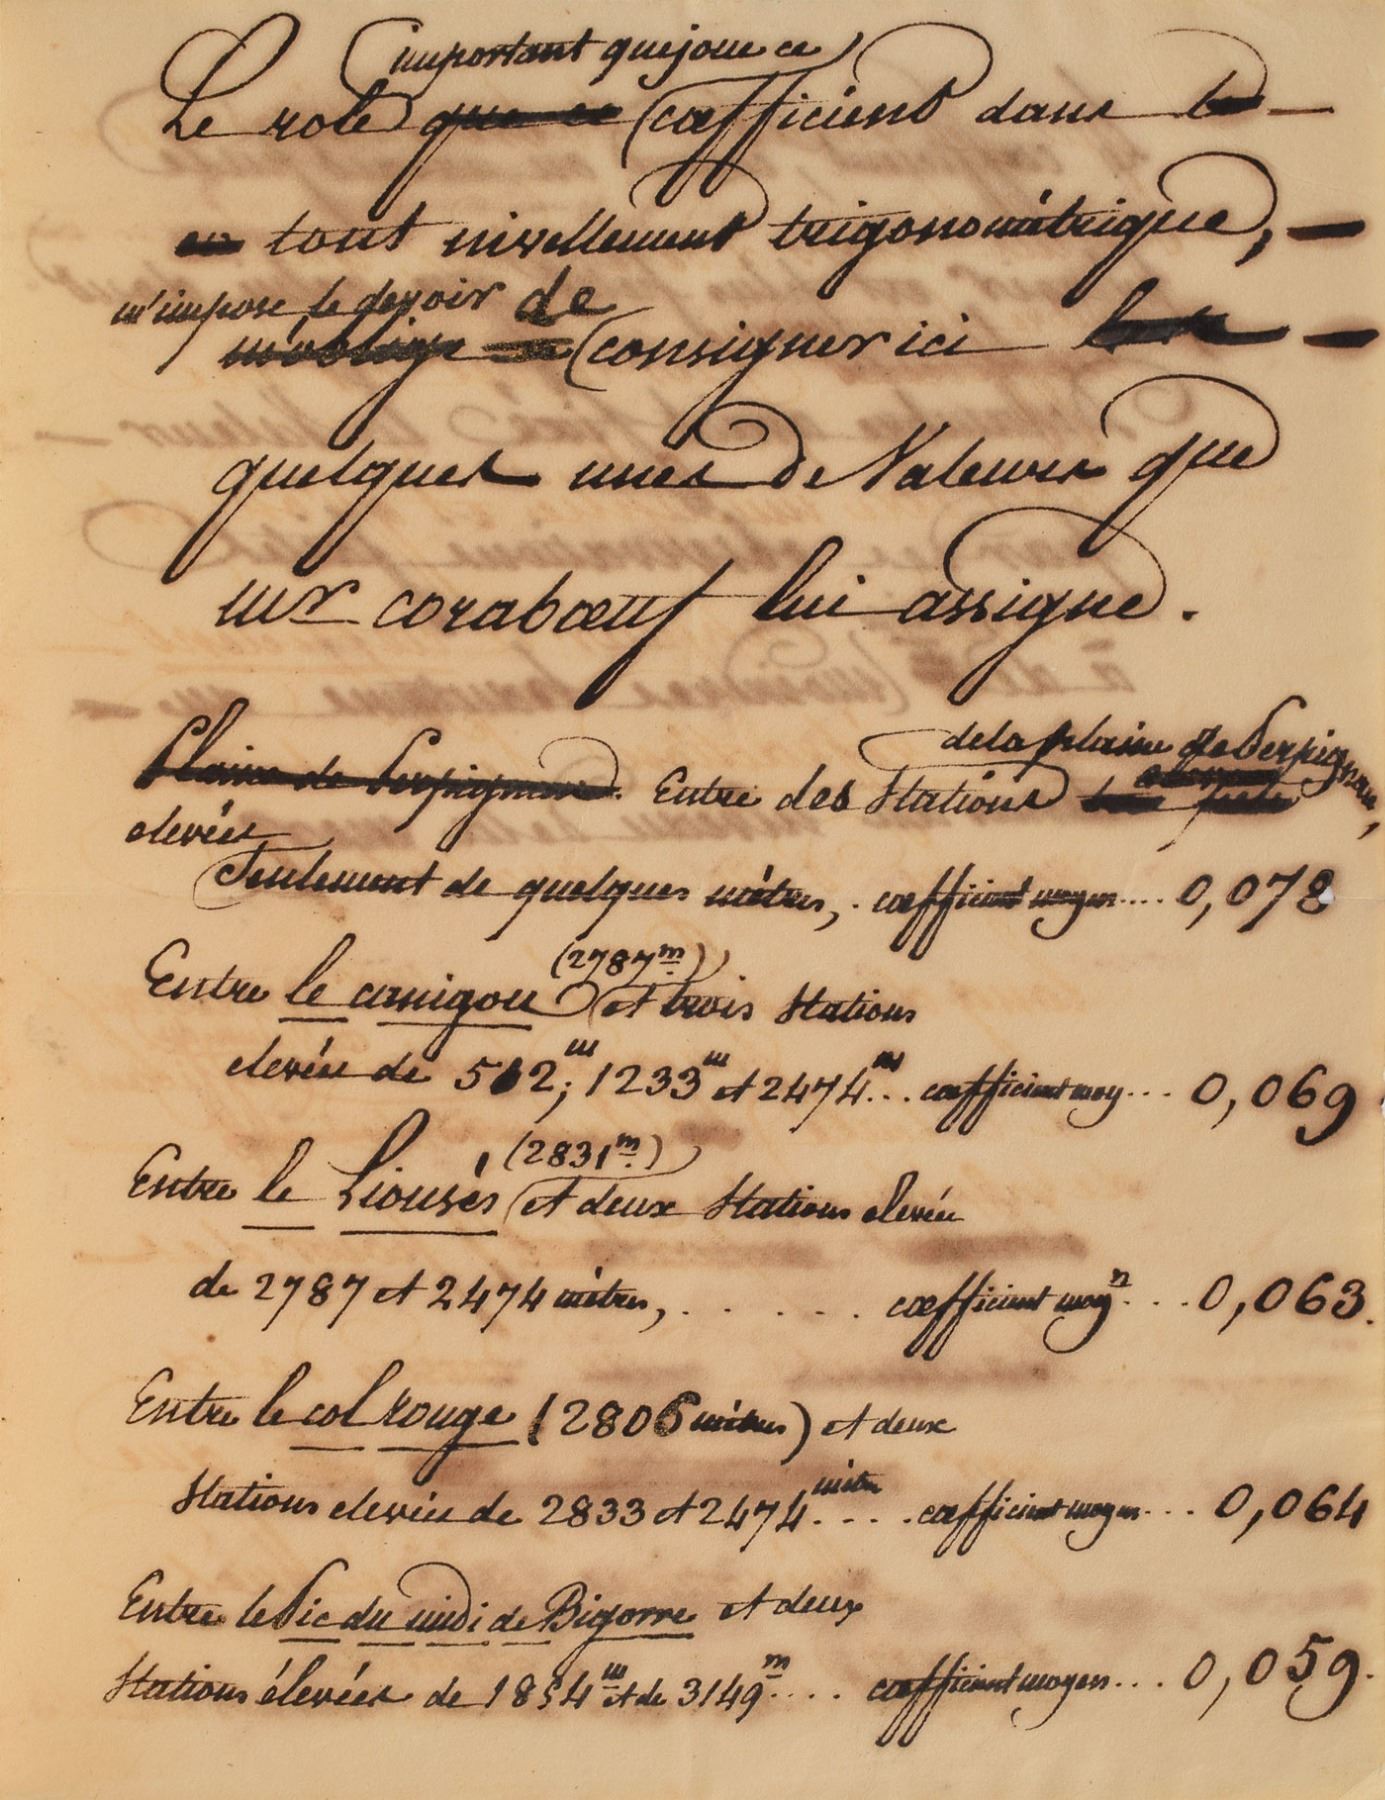 important que joue ce
Le role que ce coefficient dans
tout nivellement trigonométrique,
m'impose le devoir de
m'oblige consigner ici
quelques unes de Valeurs que
Mr corabœuf lui assigne.
de la plaine de Perpignan,
Plaine de Perpignan. Entre des Stations
elevées
Seulement de quelques mètres, . cœfficient moyen .... 0,078
(2787m.)
Entre le canigou et trois Stations
elevées de 512m; 1233m et 2474m... cœfficient moy... 0,069
(2831m.)
Entre le Liousès et deux Stations elevées
de 2787 et 2474 mètres, . . . . . cœfficient moyn... 0,063.
Entre le col rouge (2806 mètres) et deux
Stations elevées de 2833 et 2474 mètres.... cœfficient moyen... 0,064
Entre le Pic du midi de Bigorre et deux
Stations élevées de 1854m et de 3149m.... cœfficient moyen... 0,059.